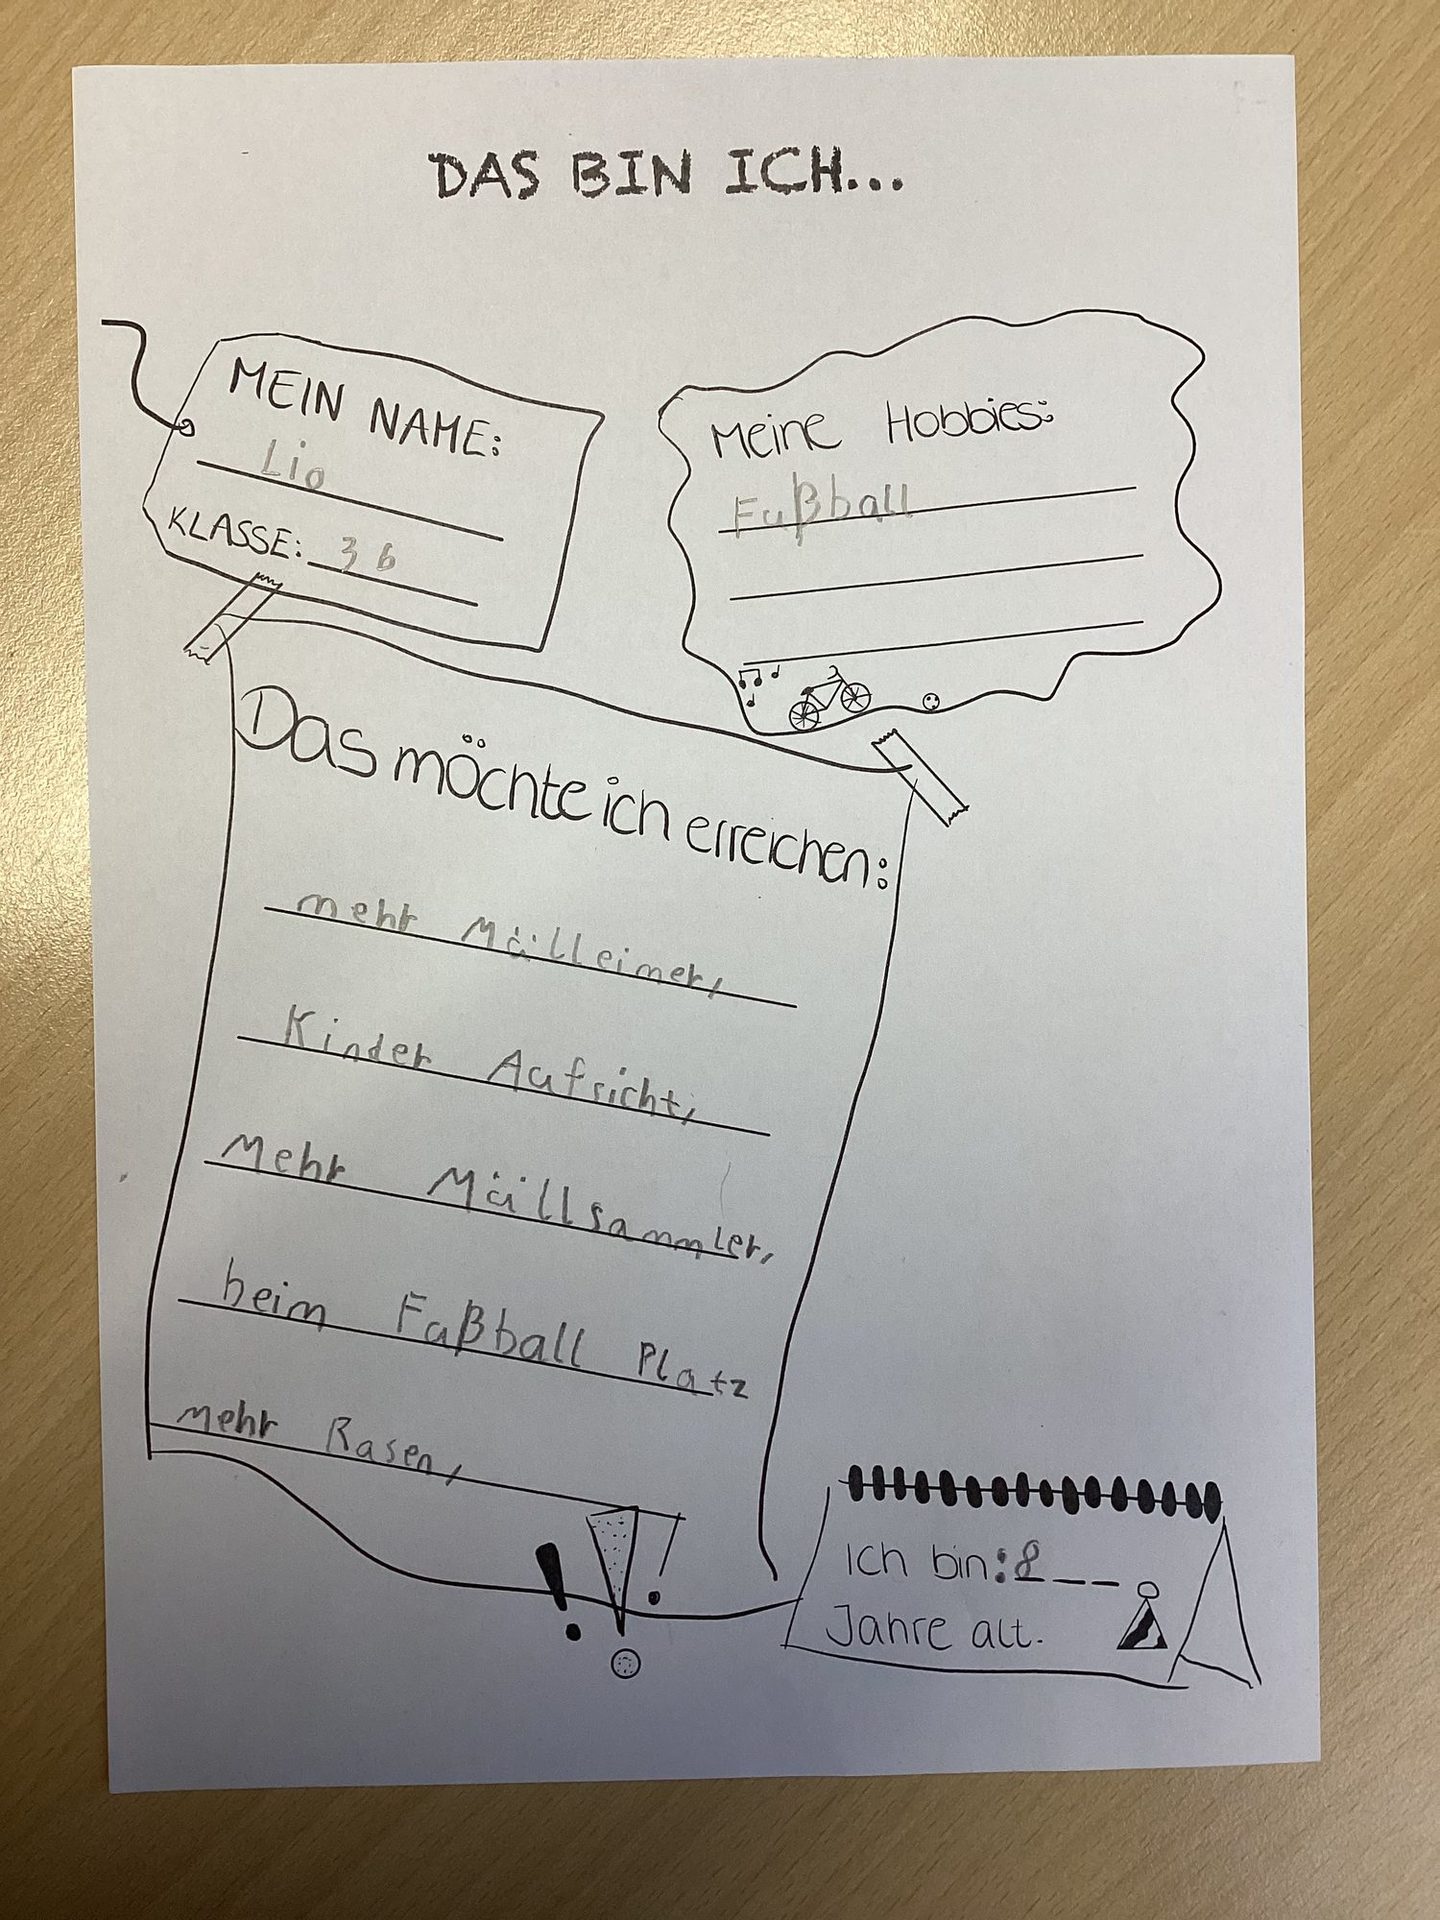 DAS BIN ICH...
MEIN NAME:
Lio
KLASSE: 3b
Meine Hobbies:
Fußball
Das möchte ich erreichen:
mehr Mülleimer,
Kinder Aufsicht,
Mehr Müllsammler,
beim Fußball Platz
mehr Rasen,
Ich bin: 8
Jahre alt.